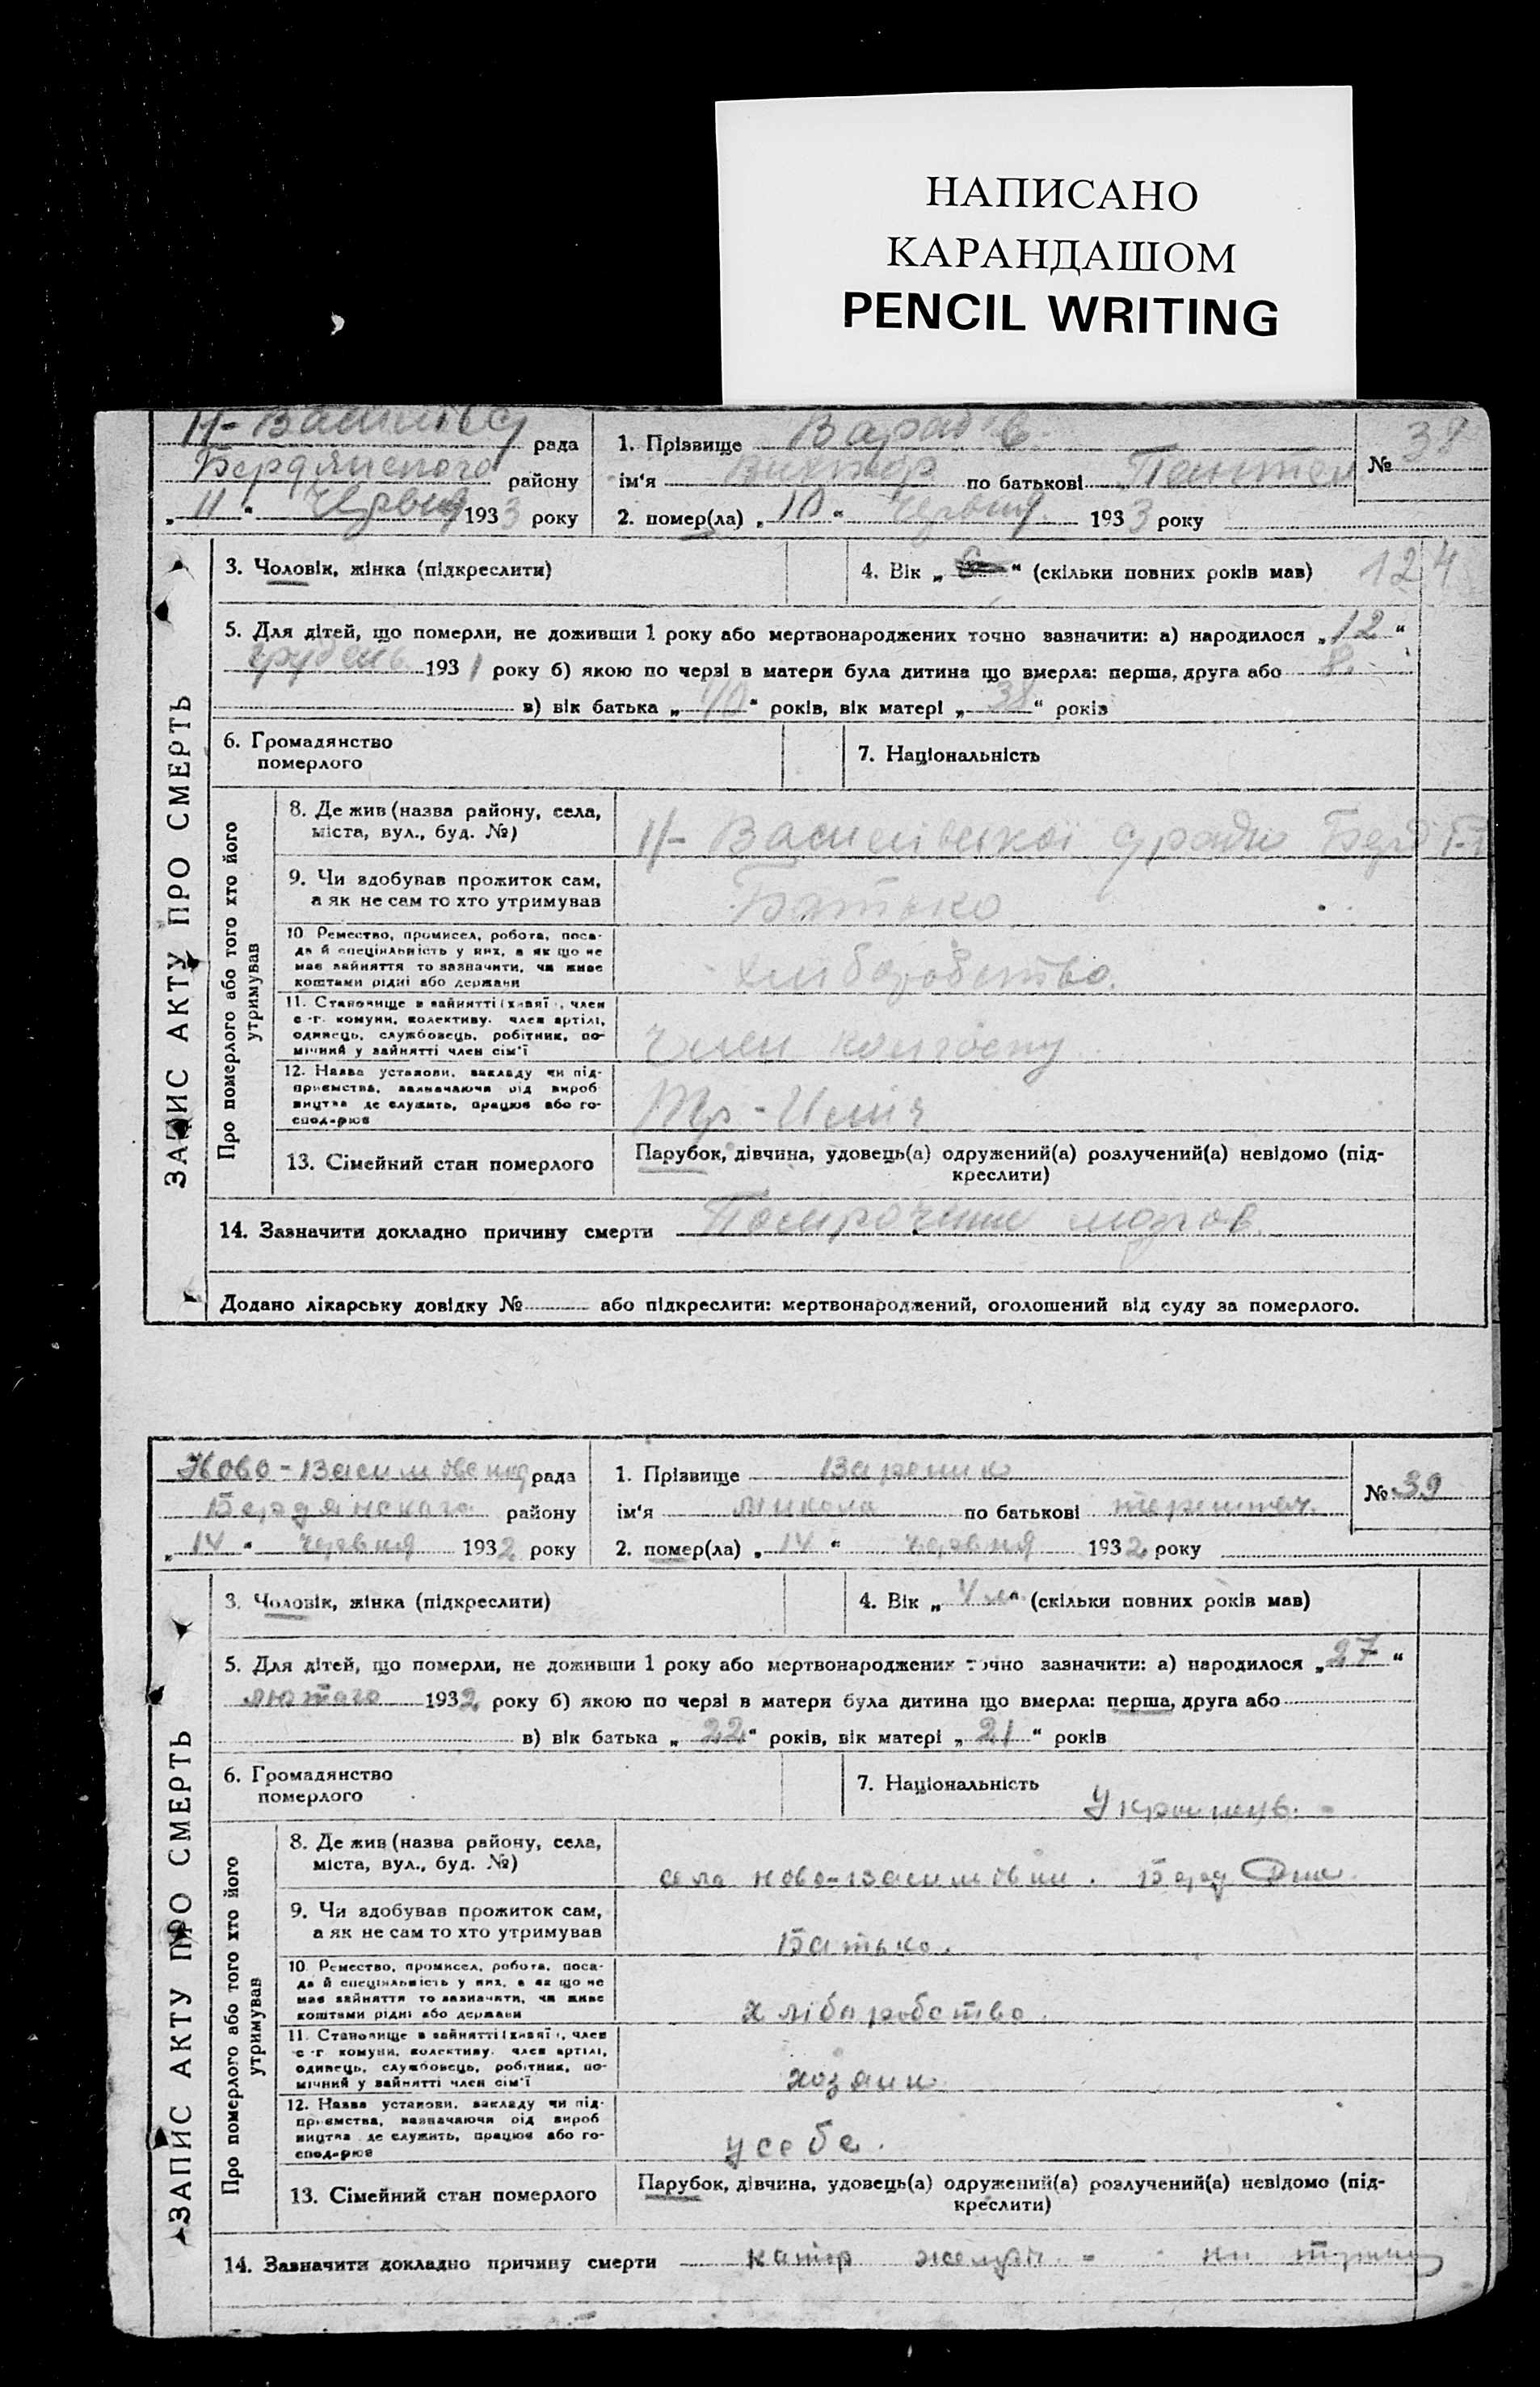 НАПИСАНО
КАРАНДАШОМ
PENCIL WRITING
рада
1. Прізвище
№ 38
Бердянского району
ім'я Виктор по батькові
„11“ Червня 1933 року
2. помер(ла) „10“ Червня 1933 року
ЗАПИС АКТУ ПРО СМЕРТЬ
3. Чоловік, жінка (підкреслити)
4. Вік „ “ (скільки повних років мав)
124
5. Для дітей, що померли, не доживши 1 року або мертвонароджених точно зазначити: а) народилося „12“
грудень 1931 року б) якою по черзі в матери була дитина що вмерла: перша, друга або 8.
в) вік батька „ “ років, вік матері „38“ років
6. Громадянство
померлого
7. Національність
Про померлого або того хто його
утримував
8. Де жив (назва району, села,
міста, вул., буд. №)
Н-Василівської с/ради
9. Чи здобував прожиток сам,
а як не сам то хто утримував
Батько
10 Ремество, промисел, робота, поса-
да й спеціяльність у них, а як що не
має зайняття то зазначити, чи живе
коштами рідні або держави
хлиборобство.
11. Становище в зайнятті (хазяї , член
с -г. комуни, колективу. член артілі,
одинець, службовець, робітник, по-
мічний у зайнятті член сім'ї
член колгоспу
12. Назва установи, закладу чи під-
приємства, зазначаючи рід вироб
ництва де служить, працює або го-
сподарює
13. Сімейний стан померлого
Парубок, дівчина, удовець(а) одружений(а) розлучений(а) невідомо (під-
креслити)
14. Зазначити докладно причину смерти мозгов.
Додано лікарську довідку № або підкреслити: мертвонароджений, оголошений від суду за померлого.
рада
1. Прізвище Вареник
№ 39
Бердянскаго району
ім'я микола по батькові
„14“ червня 1932 року
2. помер(ла) „14“ червня 1932 року
ЗАПИС АКТУ ПРО СМЕРТЬ
3. Чоловік, жінка (підкреслити)
4. Вік „4 м.“ (скільки повних років мав)
5. Для дітей, що померли, не доживши 1 року або мертвонароджених точно зазначити: а) народилося „27“
лютого 1932 року б) якою по черзі в матери була дитина що вмерла: перша, друга або
в) вік батька „22“ років, вік матері „21“ років
6. Громадянство
померлого
7. Національність
Про померлого або того хто його
утримував
8. Де жив (назва району, села,
міста, вул., буд. №)
село ново-василівки.
9. Чи здобував прожиток сам,
а як не сам то хто утримував
Батько.
10 Ремество, промисел, робота, поса-
да й спеціяльність у них, а як що не
має зайняття то зазначити, чи живе
коштами рідні або держави
хліборобство.
11. Становище в зайнятті (хазяї , член
с -г комуни, колективу. член артілі,
одинець, службовець, робітник, по-
мічний у зайнятті член сім'ї
хозяин
12. Назва установи, закладу чи під-
приємства, зазначаючи рід вироб
ництва де служить, працює або го-
сподарює
у себе.
13. Сімейний стан померлого
Парубок, дівчина, удовець(а) одружений(а) розлучений(а) невідомо (під-
креслити)
14. Зазначити докладно причину смерти катар